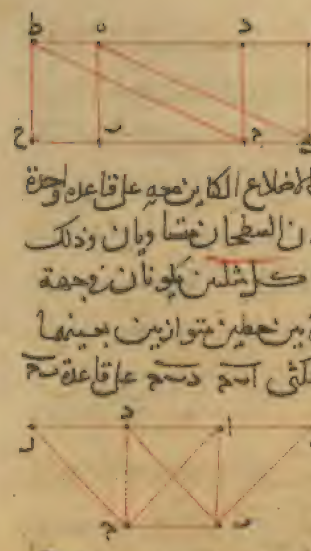 ط ه د
ح ب ج
الاضلاع الكاين معه على قاعدة واحدة
ن السطحان متساويان وذلك
كل مثلثين يكونان في جهة
بين خطين متوازيين بعينهما
مثلثى ابج دبج على قاعدة بج
د ا
ج ب